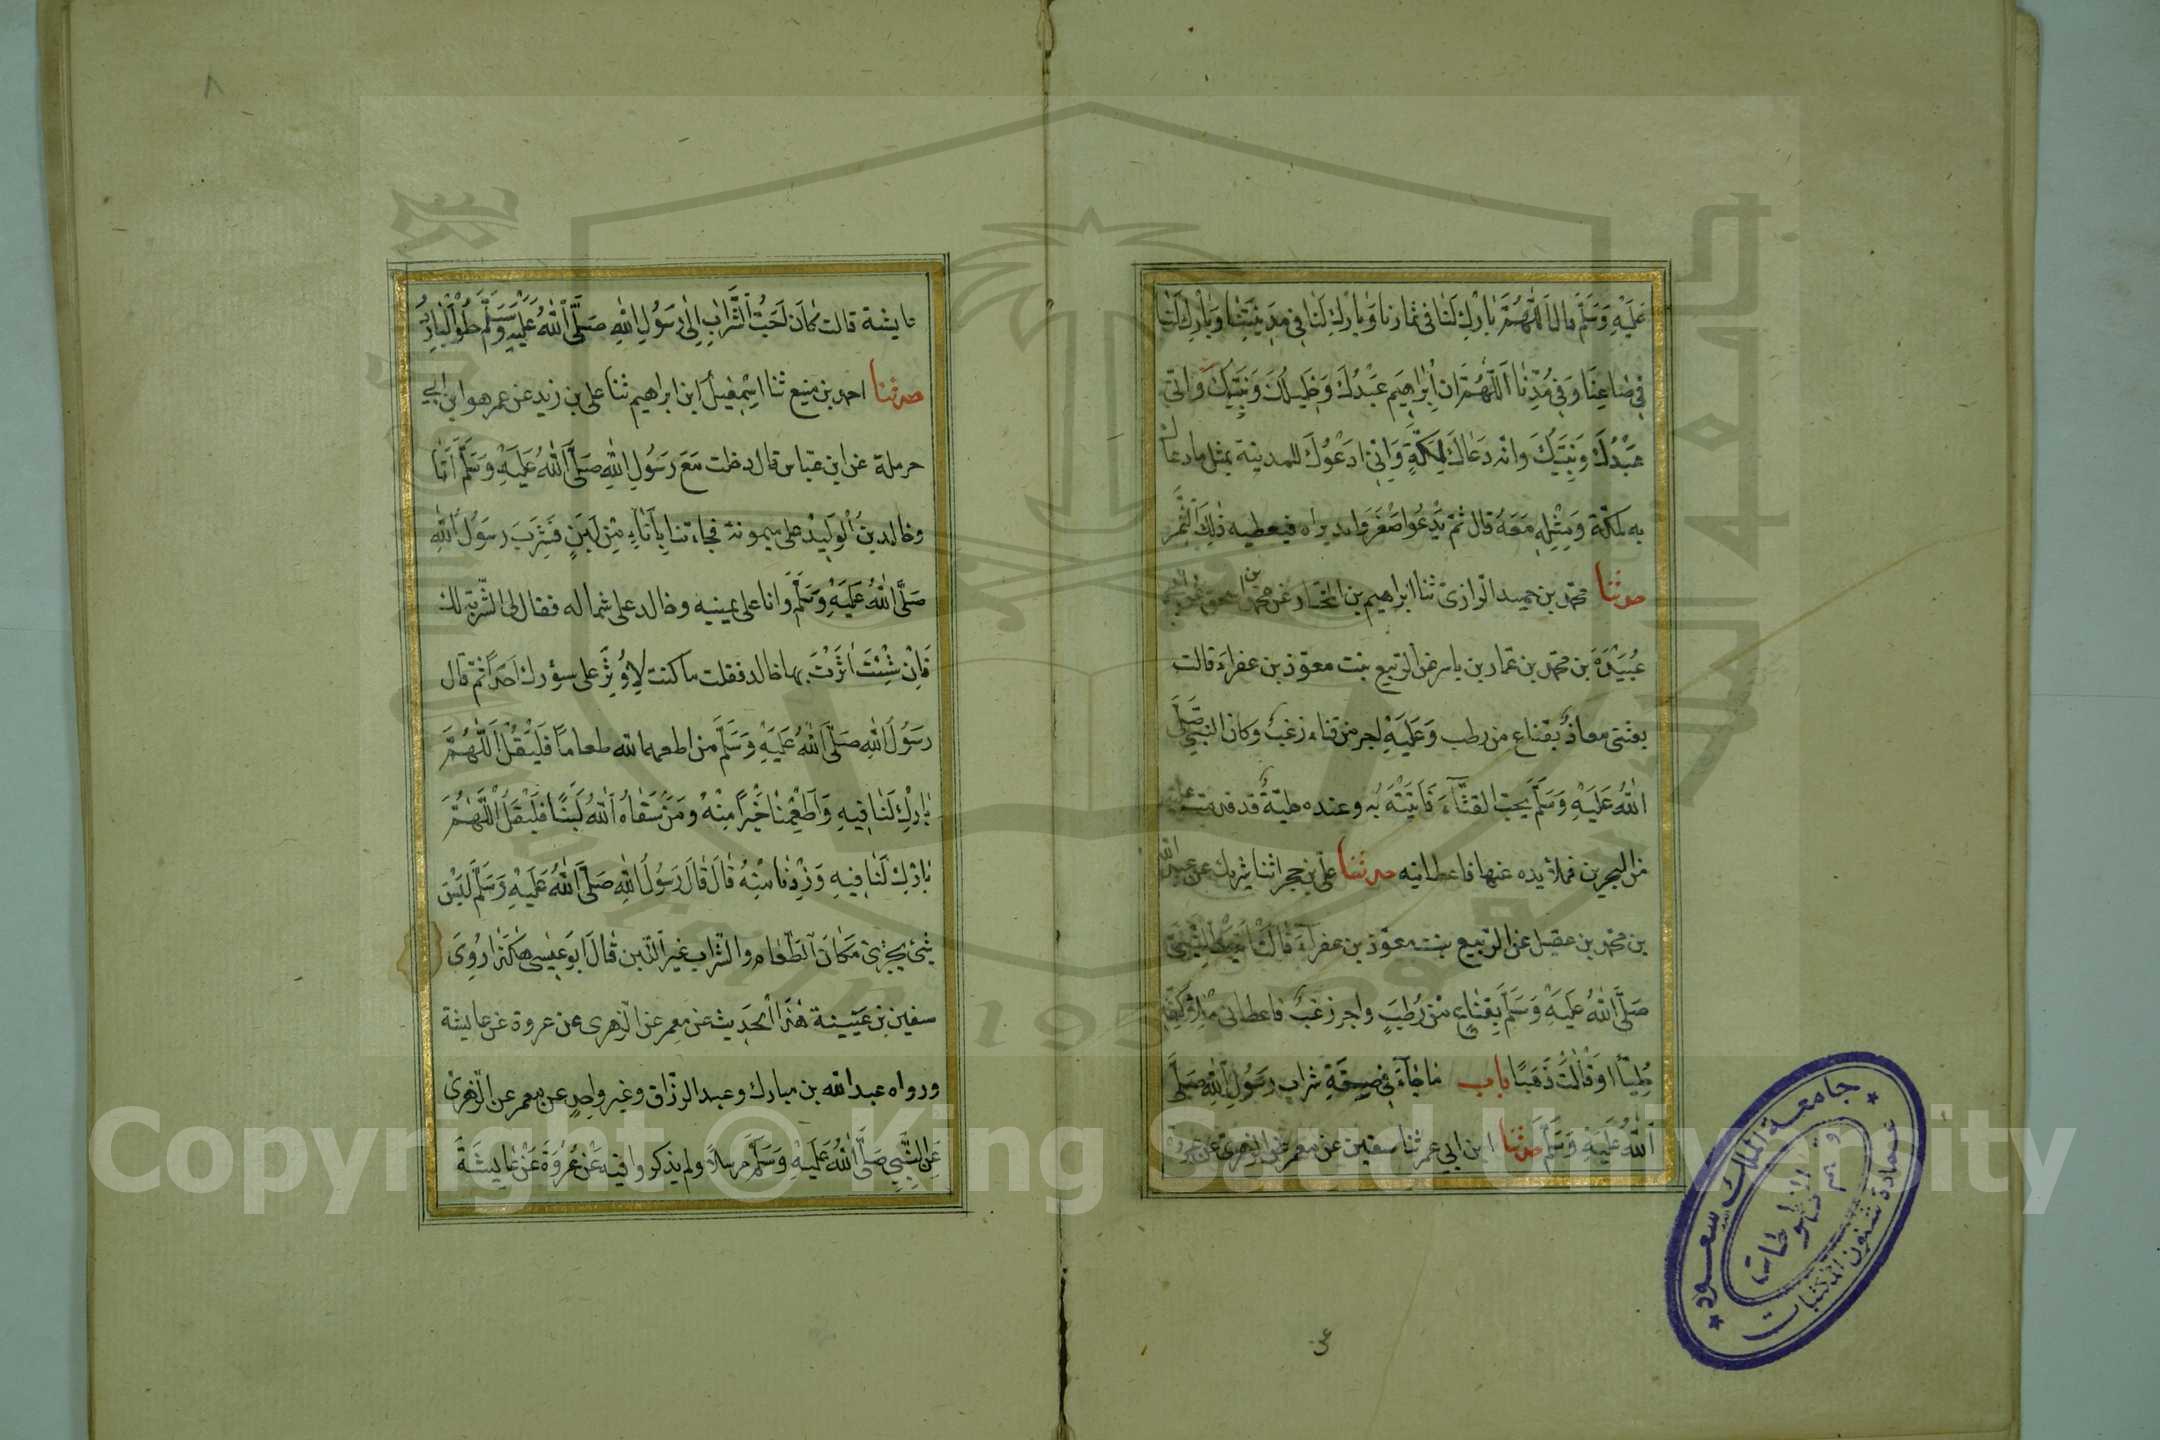 عَلَيْهِ وَسَلَّمَ قال اَللّٰهُمَّ بَارِك لَنَا فى ثمارنا وَبَارِك لَنَا فى مَدِينَتِنَا وَبَارِك لَنَا
فى صَاعِنَا وَفى مُدِّنَا اَللّٰهُمَّ ان اِبْرَاهِيم عَبْدُكَ وَخَلِيلُكَ وَنَبِيُّكَ وَانّى
عَبْدُكَ وَنَبِيُّكَ وانه دَعَاكَ لِمَكَّةَ وَانّى ادَعُوكَ للمدينة بمثل ما دعاك
به لمكّة وَمِثْلِهِ مَعَهُ قال ثمّ يَدْعُوا اصْغَرَ وليد يراه فيعطيه ذٰلِكَ الثَّمَر
حدثنا محمّد بن حميد الرازى ثنا ابراهيم بن المختار عن محمّد بن اسحق عن
عُبَيْدَةَ بن محمّد بن عمّار بن ياسر عن الربيع بنت معوّذ بن عفراء قالت
بعثنى معاذ بقناع من رطب وَعَلَيْهِ اجر من قثاء زغب وكان النبي صَلَّى
اللّٰهُ عَلَيْهِ وَسَلَّمَ يحبّ القثّآءَ فَاَتَيْتُهُ به وعنده حلية قد قدمت عليه
من البحرين فملأ يده منها فاعطانيه حدثنا علىّ بن حجر انثنا شريك عن عبد الله
بن محمّد بن عقيل عن الربيع بنت معوّذ بن عفرآء قَالَتْ اَتَيْتُ النَّبِيَّ
صَلَّى اللّٰهُ عَلَيْهِ وَسَلَّمَ بِقِنَاعٍ مِنْ رُطَبٍ واجر زغب فاعطانى مِلْأ كَفِّهِ
حُلِيًّا اوْ قَالَتْ ذَهَبًا باب مَا جَآءَ فى صفة شراب رَسُولِ اللّٰهِ صَلَّى
اَللّٰهُ عَلَيْهِ وَسَلَّمَ حدثنا ابن ابي عمر ثنا سفين عن معمر عن الزهرى عن عروة
عن
٨
عايشة قالت كَانَ اَحَبُّ الشَّرَابِ اِلٰى رَسُولِ اللّٰهِ صَلَّى اللّٰهُ عَلَيْهِ وَسَلَّمَ حُلْوُ الْبَارِدُ
حدثنا احمد بن منيع ثنا اِسْمٰعِيلُ ابن ابراهيم ثنا على بن زيد عن عمر هو ابن ابي
حرملة عن ابن عبّاس قال دخلت مَعَ رَسُولِ اللّٰهِ صَلَّى اللّٰهُ عَلَيْهِ وَسَلَّمَ اَنَا
وخالد بن الْوَلِيد على ميمونة فجاءتنا بِاِنَآءٍ مِنْ لَبَنٍ فَشَرِبَ رسَوُلُ اللّٰهِ
صَلَّى اللّٰهُ عَلَيْهِ وَسَلَّمَ وانا على يمينه وخالد على شماله فقال لى الشربة لك
فَاِنْ شِئْتَ اٰثَرْتَ بها خالد فقلت ما كنت لِاُوثِرَ على سؤرك اَحَدًا ثم قال
رَسُولُ اللّٰهِ صَلَّى اللّٰهُ عَلَيْهِ وَسَلَّمَ من اطعمه الله طعاماً فَلْيَقُلْ اَللّٰهُمَّ
بَارِك لَنَا فِيهِ وَاَطْعِمْنَا خَيْرًا مِنْهُ وَمَنْ سَقَاهُ اَللّٰهُ لَبَنًا فَلْيَقُل اَللّٰهُمَّ
بَارِك لَنَا فِيهِ وَزِدْنَا مِنْهُ قَالَ قَالَ رَسُولُ اللّٰهِ صَلَّى اللّٰهُ عَلَيْهِ وَسَلَّمَ لَيْسَ
شئ يجزئ مَكَانَ الطَّعَام والشراب غير اللبن قَالَ ابَو عِيسٰى هٰكَذَا رَوٰى
سفين بن عيينة هٰذَا الْحَدِيث عن معمر عن الزهرى عن عروة عن عايشة
ورواه عبد الله بن مبارك وعبد الرزّاق وغير واحِدٍ عن معمر عن الزهرى
عَن النَّبِيِّ صَلَّى اللّٰهُ عَلَيْهِ وَسَلَّمَ مرسلاً ولم يذكروا فيه عَنْ عُرْوَةَ عَنْ عَايشَةَ
جامعة الملك سعود
عمادة شئون المكتبات
قسم المخطوطات
1957
Copyright © King Saud University